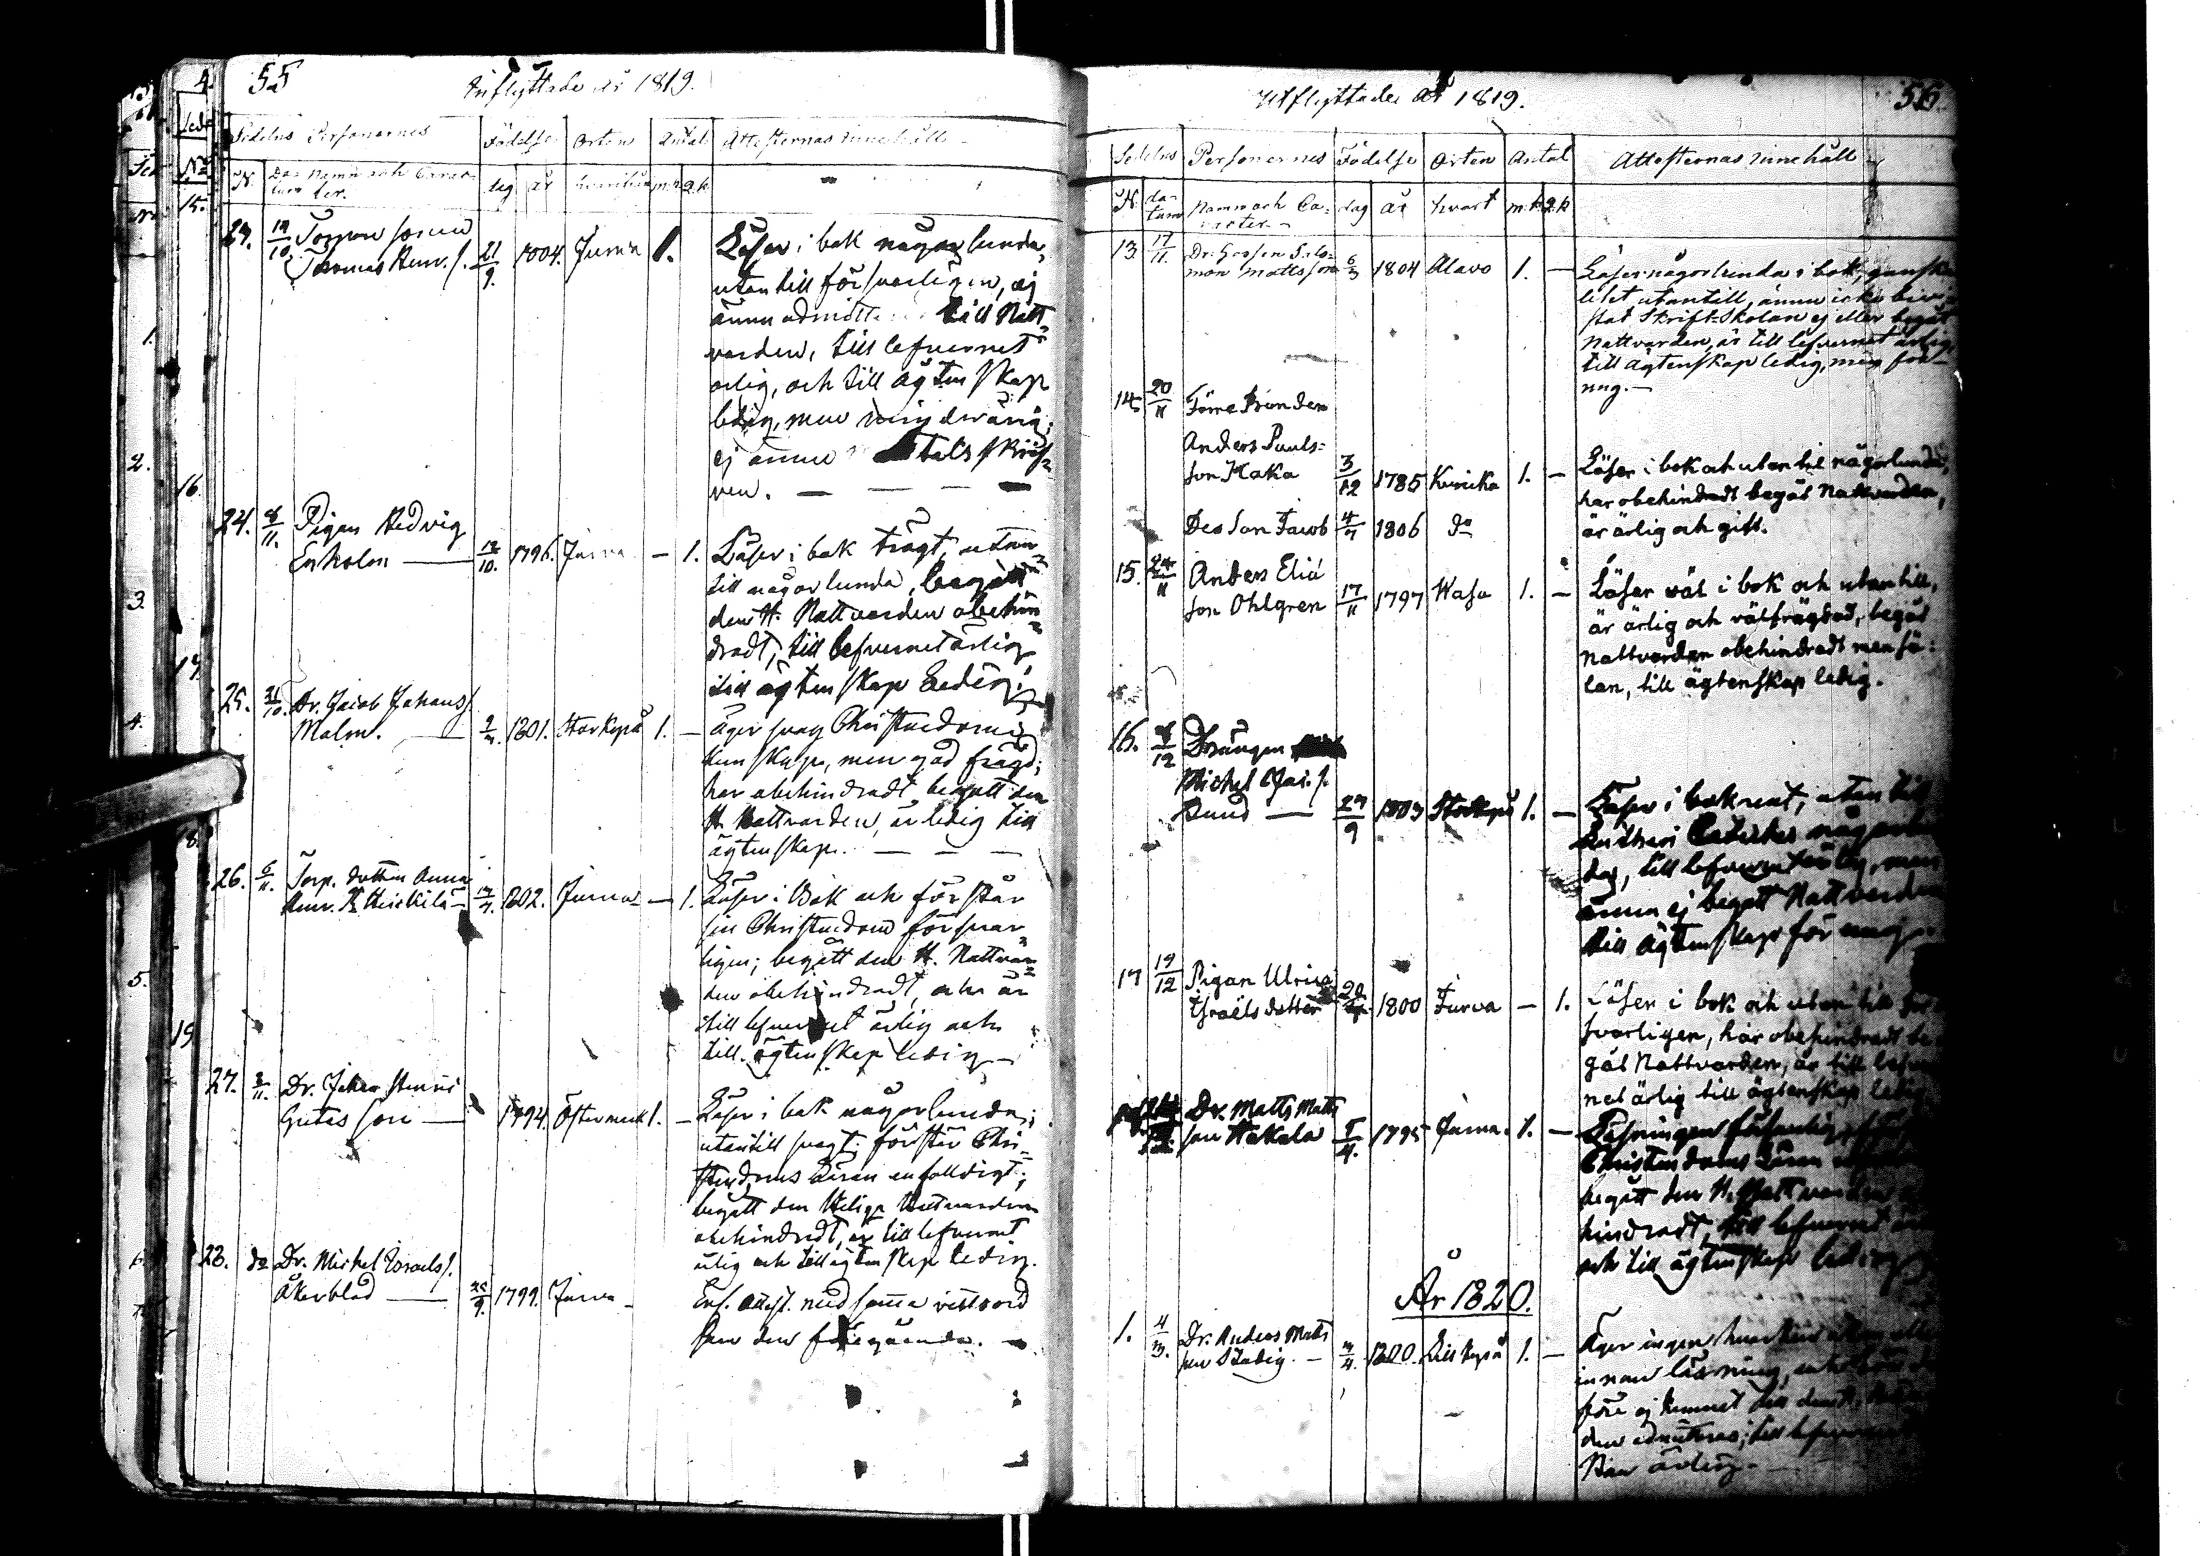 55
Inflyttade år 1819.
Sedelns Personernes Födelse Orten Antal Attesternas innehåll
N. Da= Namn och Carac=
tum ter. dag år m.k. q.k.
23. 19/10 Torpare sonen
Thomas Henr. s. 21/9. 1804. Jurva 1.
Läser i bok någorlunda,
utantill försvarligen, ej
ännu admitte till Natt=
varden, till lefvernet
ärlig, och till ägtenskap
ledig, men minderårig;
ej ännu talsskrif=
ven. — — — —
24. 8/11. Pigan Hedvig
Enholm — 12/10. 1796. Jurva — 1.
Läser i bok trögt, utan=
till någorlunda, begått
den H. Nattvarden obehin=
dradt, till lefvernet ärlig
till ägtenskap ledig.
25. 21/10. Dr. Jacob Johans s.
Malm. — 1801. Storkyrå 1. —
Äger svag Christendoms
kunskap, men god frägd;
har obehindradt begått den
H. Nattvarden, är ledig till
ägtenskap. — — —
26. 6/11. Torp. dottren Anna
Henr. — 1802. Jurva — 1.
Läser i Bok och förstår
sin Christendom försvar=
ligen; begått den H. Nattvar=
den obehindradt, och är
till lefvernet ärlig och
till ägtenskap ledig —
27. 8/11. Dr. Johan Henric
Gustafs son — 1794. Östermark 1. —
Läser i bok någorlunda;
utantill svagt; förstår Chri=
stendoms läran enfaldigt;
begått den Heliga Nattvarden
obehindradt, är till lefvernet
ärlig och till ägtenskap ledig.
28. do Dr. Michel Israels s.
Åkerblad — 25/9. 1799. Jurva —
Enl. attest. med samma vittsord
som den föregående. —
Utflyttade År 1819.
56.
Sedelns Personernes Födelse Orten Antal Attesternas innehåll
N. da=
tum Namn och Ca=
racter. dag år hvart m.k. q.k.
13. 17/11. Dr. Gossen Salo=
mon Mattsson 6/3 1804 Alavo 1. —
Läser någorlunda i bok, ganska
litet utantill, ännu icke bevi=
stat Skrift-Skolan ej eller begått
Nattvarden, är till lefvernet ärlig,
till ägtenskap ledig, men för
ung. —
14. 20/11 Förre Bonden
Anders Pauls=
son Haka 3/12 1785 1. —
Des Son Jacob 4/7 1806 do
Läser i bok och utantil någorlunda,
har obehindradt begåt Nattvarden,
är ärlig och gift.
15. 24/11 Anders Elia
son Ohlgren 17/11 1797 Wasa 1. —
Läser väl i bok och utantill,
är ärlig och välfrägdad, begåt
Nattvarden obehindradt men sä=
lan, till ägtenskap ledig.
16. 8/12 Drängen
Michel
Sund — 29/9 1803 Storkyrå 1. —
Läser i bok rent, utan till
Lutheri Cateches någorlun
da, till lefvernet ärlig, men
ännu ej begått Nattvarden
till ägtenskap för ung
17 19/12 Pigan Ulrica
Israëls dotter 20 1800 Jurva — 1.
Läser i bok och utan till för
svarligen, har obehindradt be
gåt Nattvarden, är till lefver
net ärlig till ägtenskap ledig
Dr. Matts Matts
son Hakala 5/4. 1795 Jurva. 1. —
Läsningen försvarlig,
Christendoms Läran
begått den H. Nattvarden
hindradt, till lefvernet
och till ägtenskap ledig
År 1820.
1. 4/3. Dr. Anders Matts
son Stadig. — 3/4. 1800. Lillkyrå 1. —
Äger ingen
innan läsning,
före ej kunnat till den H.
den admitteras; till lefvernet
ärlig. —